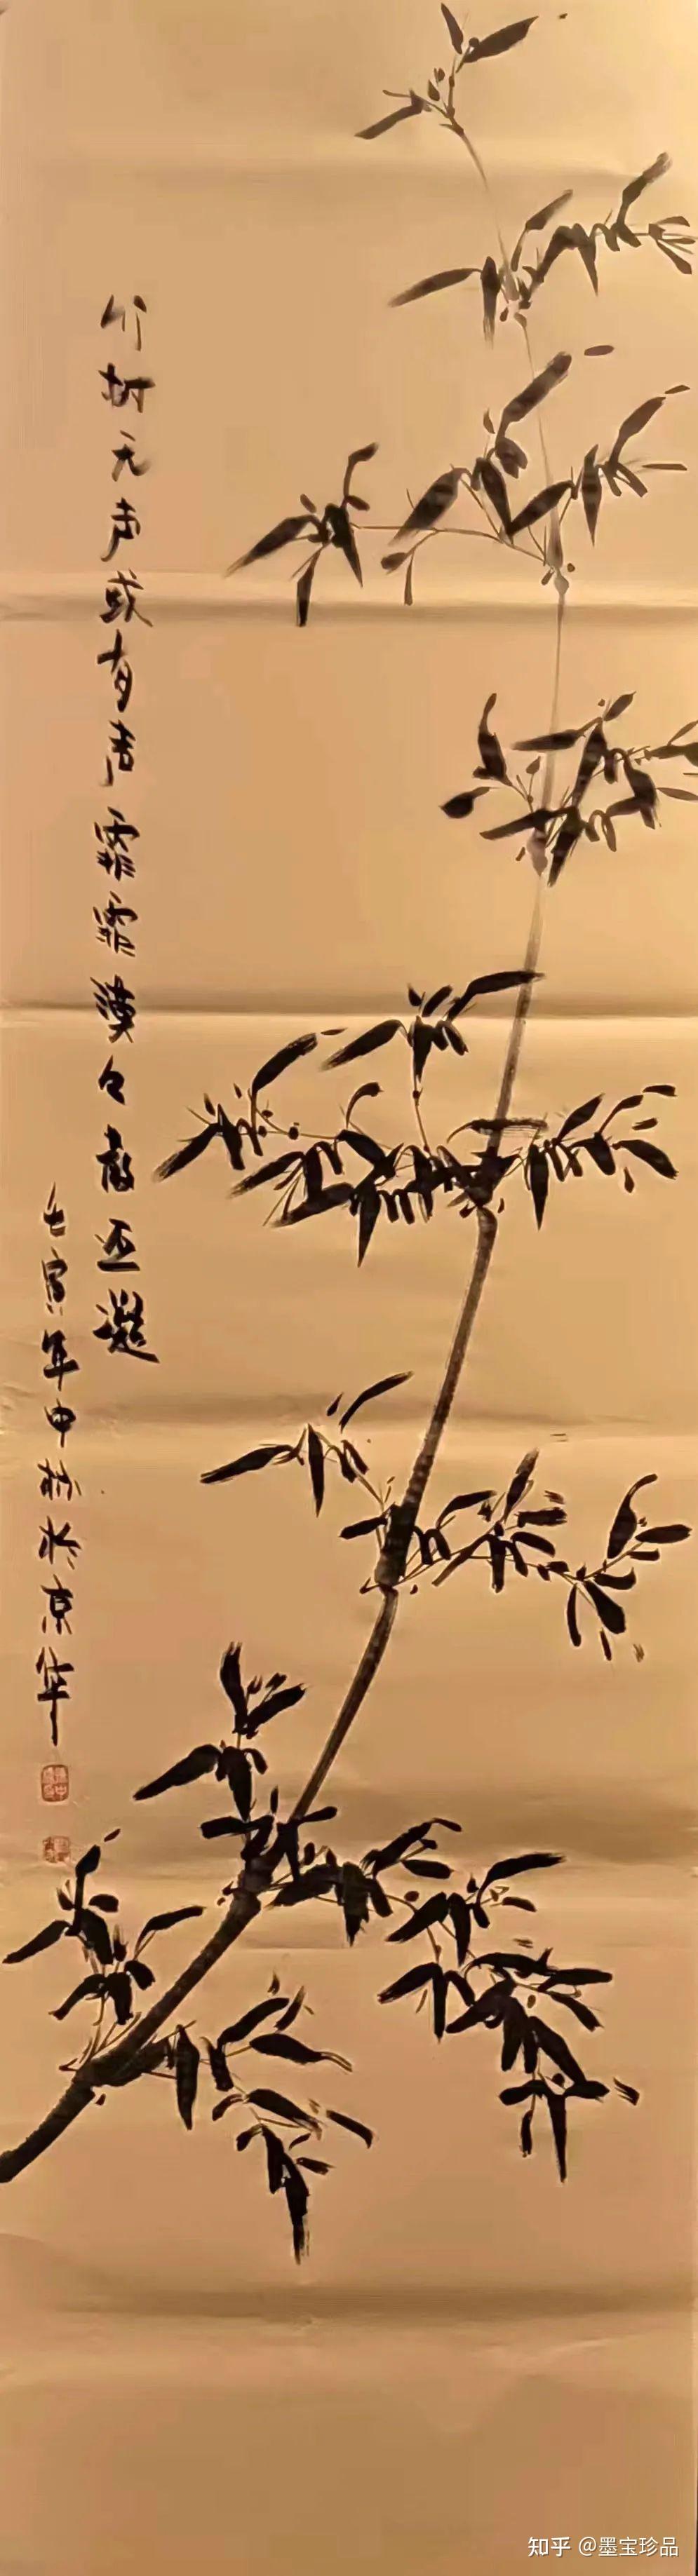 竹树无声或有声霏霏漠々散还凝
壬寅年中秋於京华
知乎 @墨宝珍品